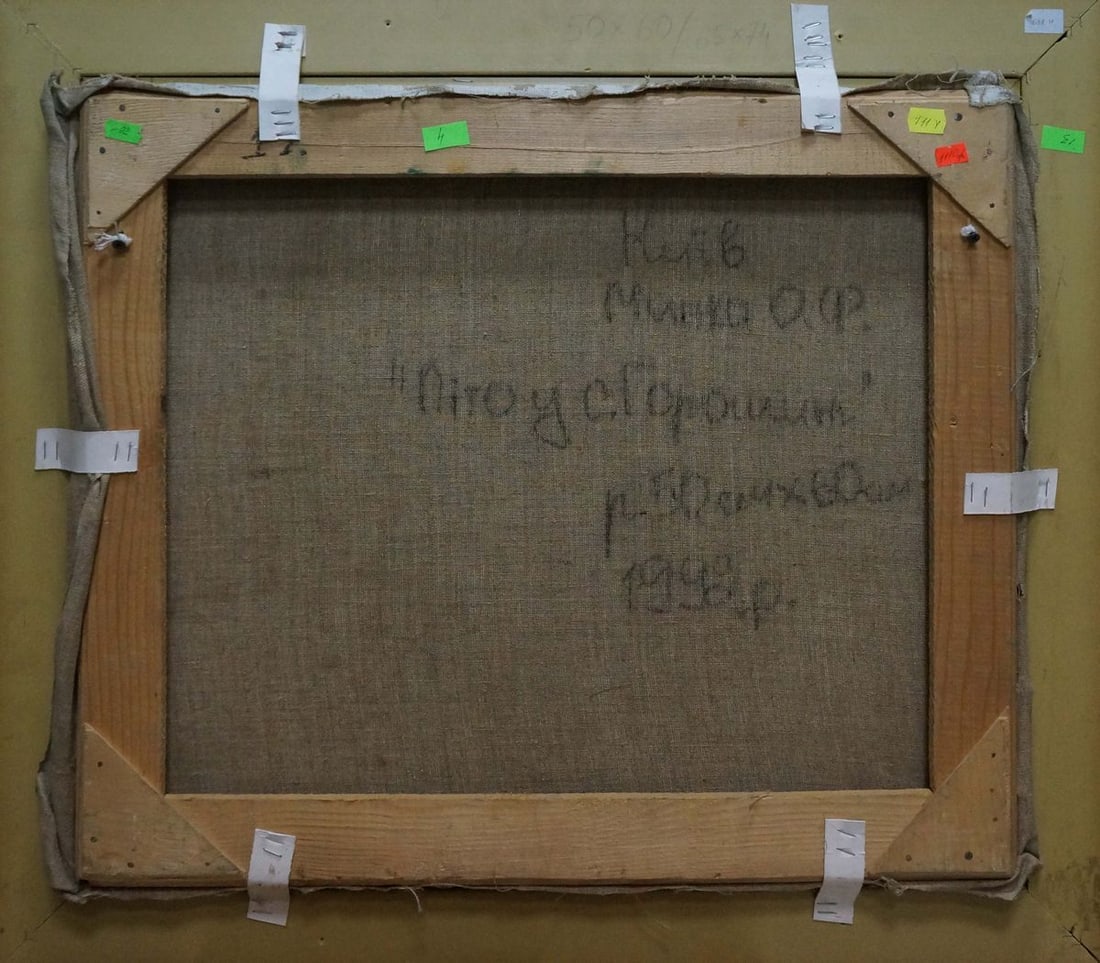 50x60/65x74
Київ
Минка О.Ф.
"Літо у с.Горошин"
р. 50смх60см
1998р.
4